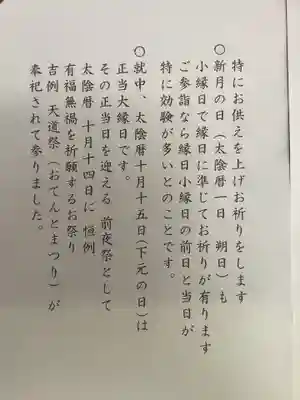 特にお供えを上げお祈りをします
〇新月の日(太陰暦一日 朔日)も
小縁日で縁日に準じてお祈りが有ります
ご参詣なら縁日小縁日の前日と当日が
特に効験が多いとのことです。
〇就中、太陰暦十月十五日(下元の日)は
正当大縁日です。
その正当日を迎える 前夜祭として
太陰暦 十月十四日に 恒例
有福無禍を祈願するお祭り
吉例 天道祭(おてんとまつり) が
奉祀されて参りました。